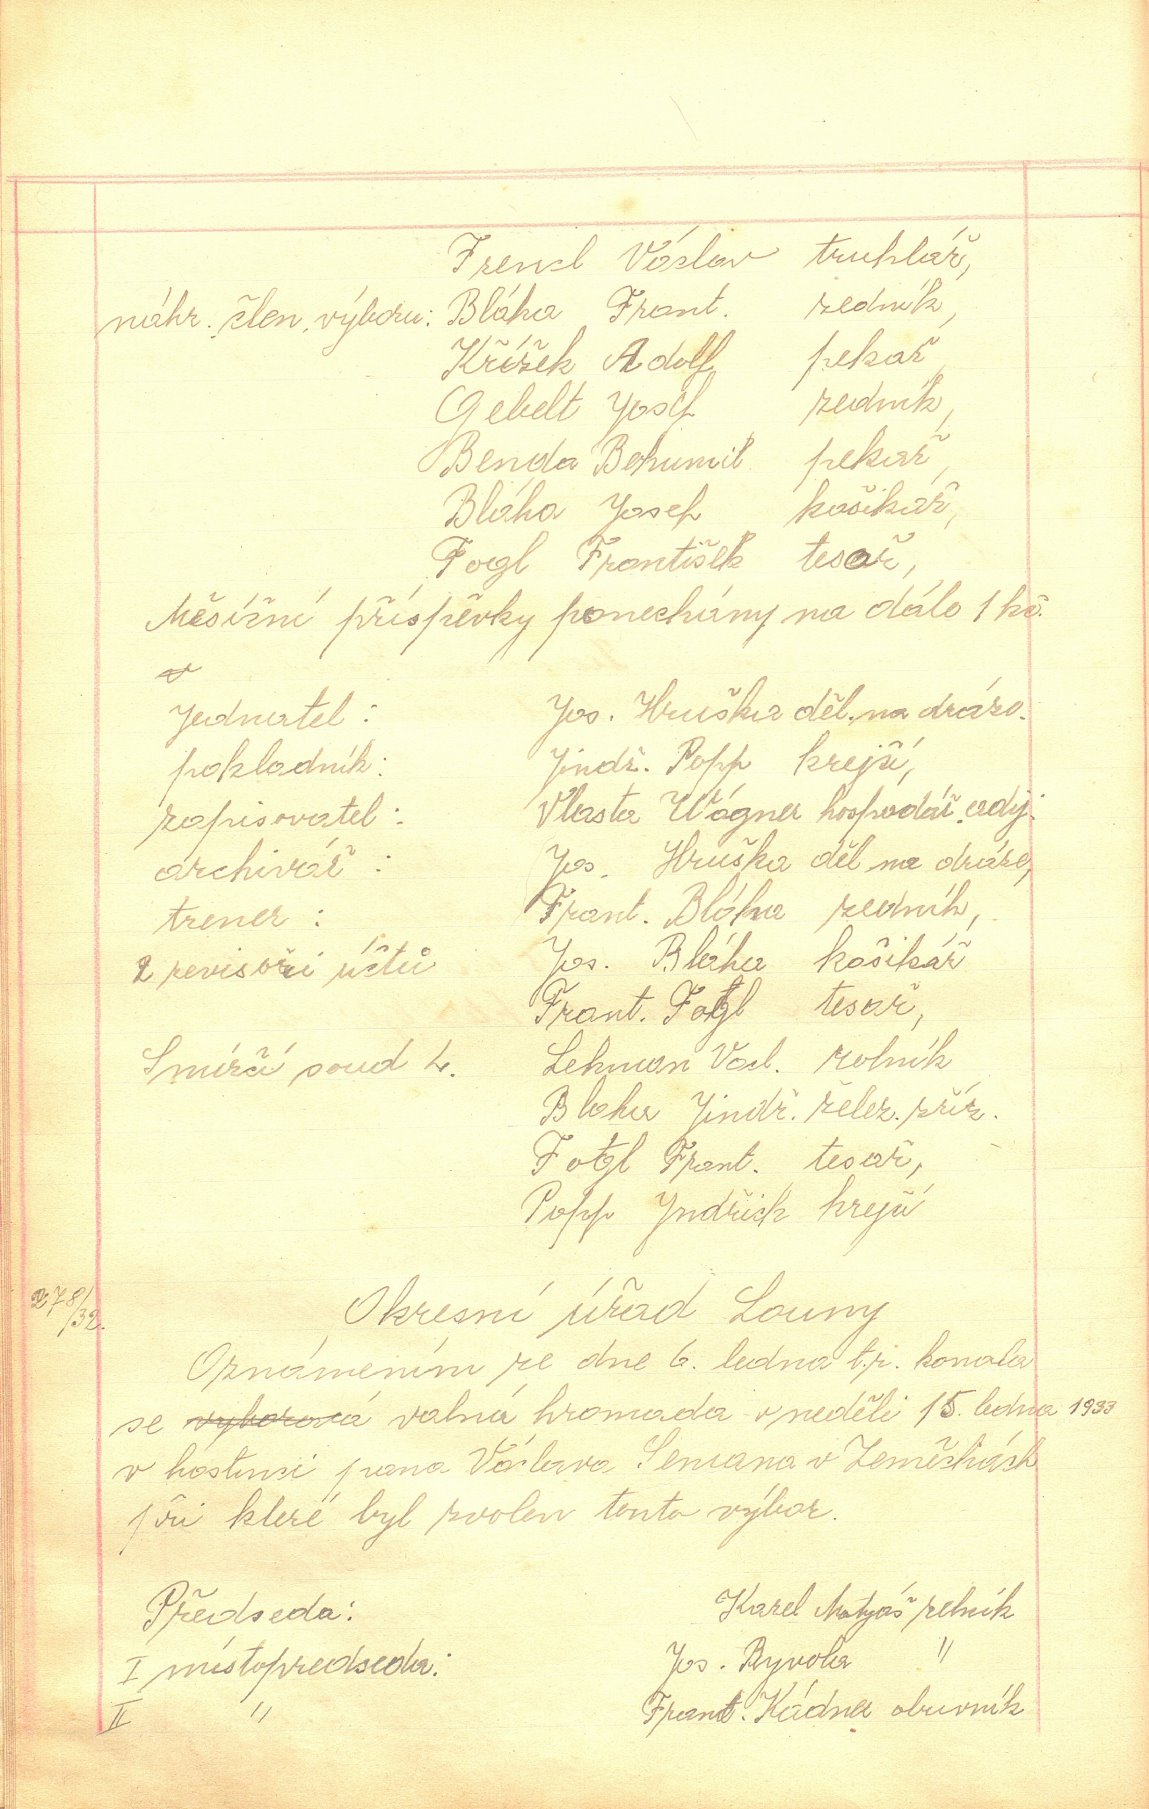 Frencl Václav truhlář,
náhr. člen. výboru: Bláha Frant. zedník,
Křížek Adolf pekař,
Gebelt Josef zedník,
Benda Bohumil pekař,
Bláha Josef košikář,
Fogl František tesař,
Měsíční příspěvky ponechány na dálo 1 kč.
Jednatel: Jos. Hruška děl. na dráze.
pokladník: Jindř. Popp krejčí,
zapisovatel: Vlasta Wágner hospodář. adj.
archivář: Jos. Hruška děl na dráze,
trener: Frant. Bláha zedník,
2 revisoři účtů Jos. Bláha košikář
Frant. Fogl tesař,
Smírčí soud 4. Lehman Václ. rolník
Blaha Jindř. želez. zříz.
Fogl Frant. tesař,
Popp Jndřich krejčí
278/32. Okresní úřad Louny
Oznámením ze dne 6. ledna t.r. konala
se vyborová valná hromada v neděli 15. ledna 1933
v hostinci pana Václava Semana v Zeměchách
při které byl zvolen tento výbor.
Předseda: Karel Matyáš rolník
I místopředseda: Jos. Ryvola "
II " Frant. Kádner obuvník